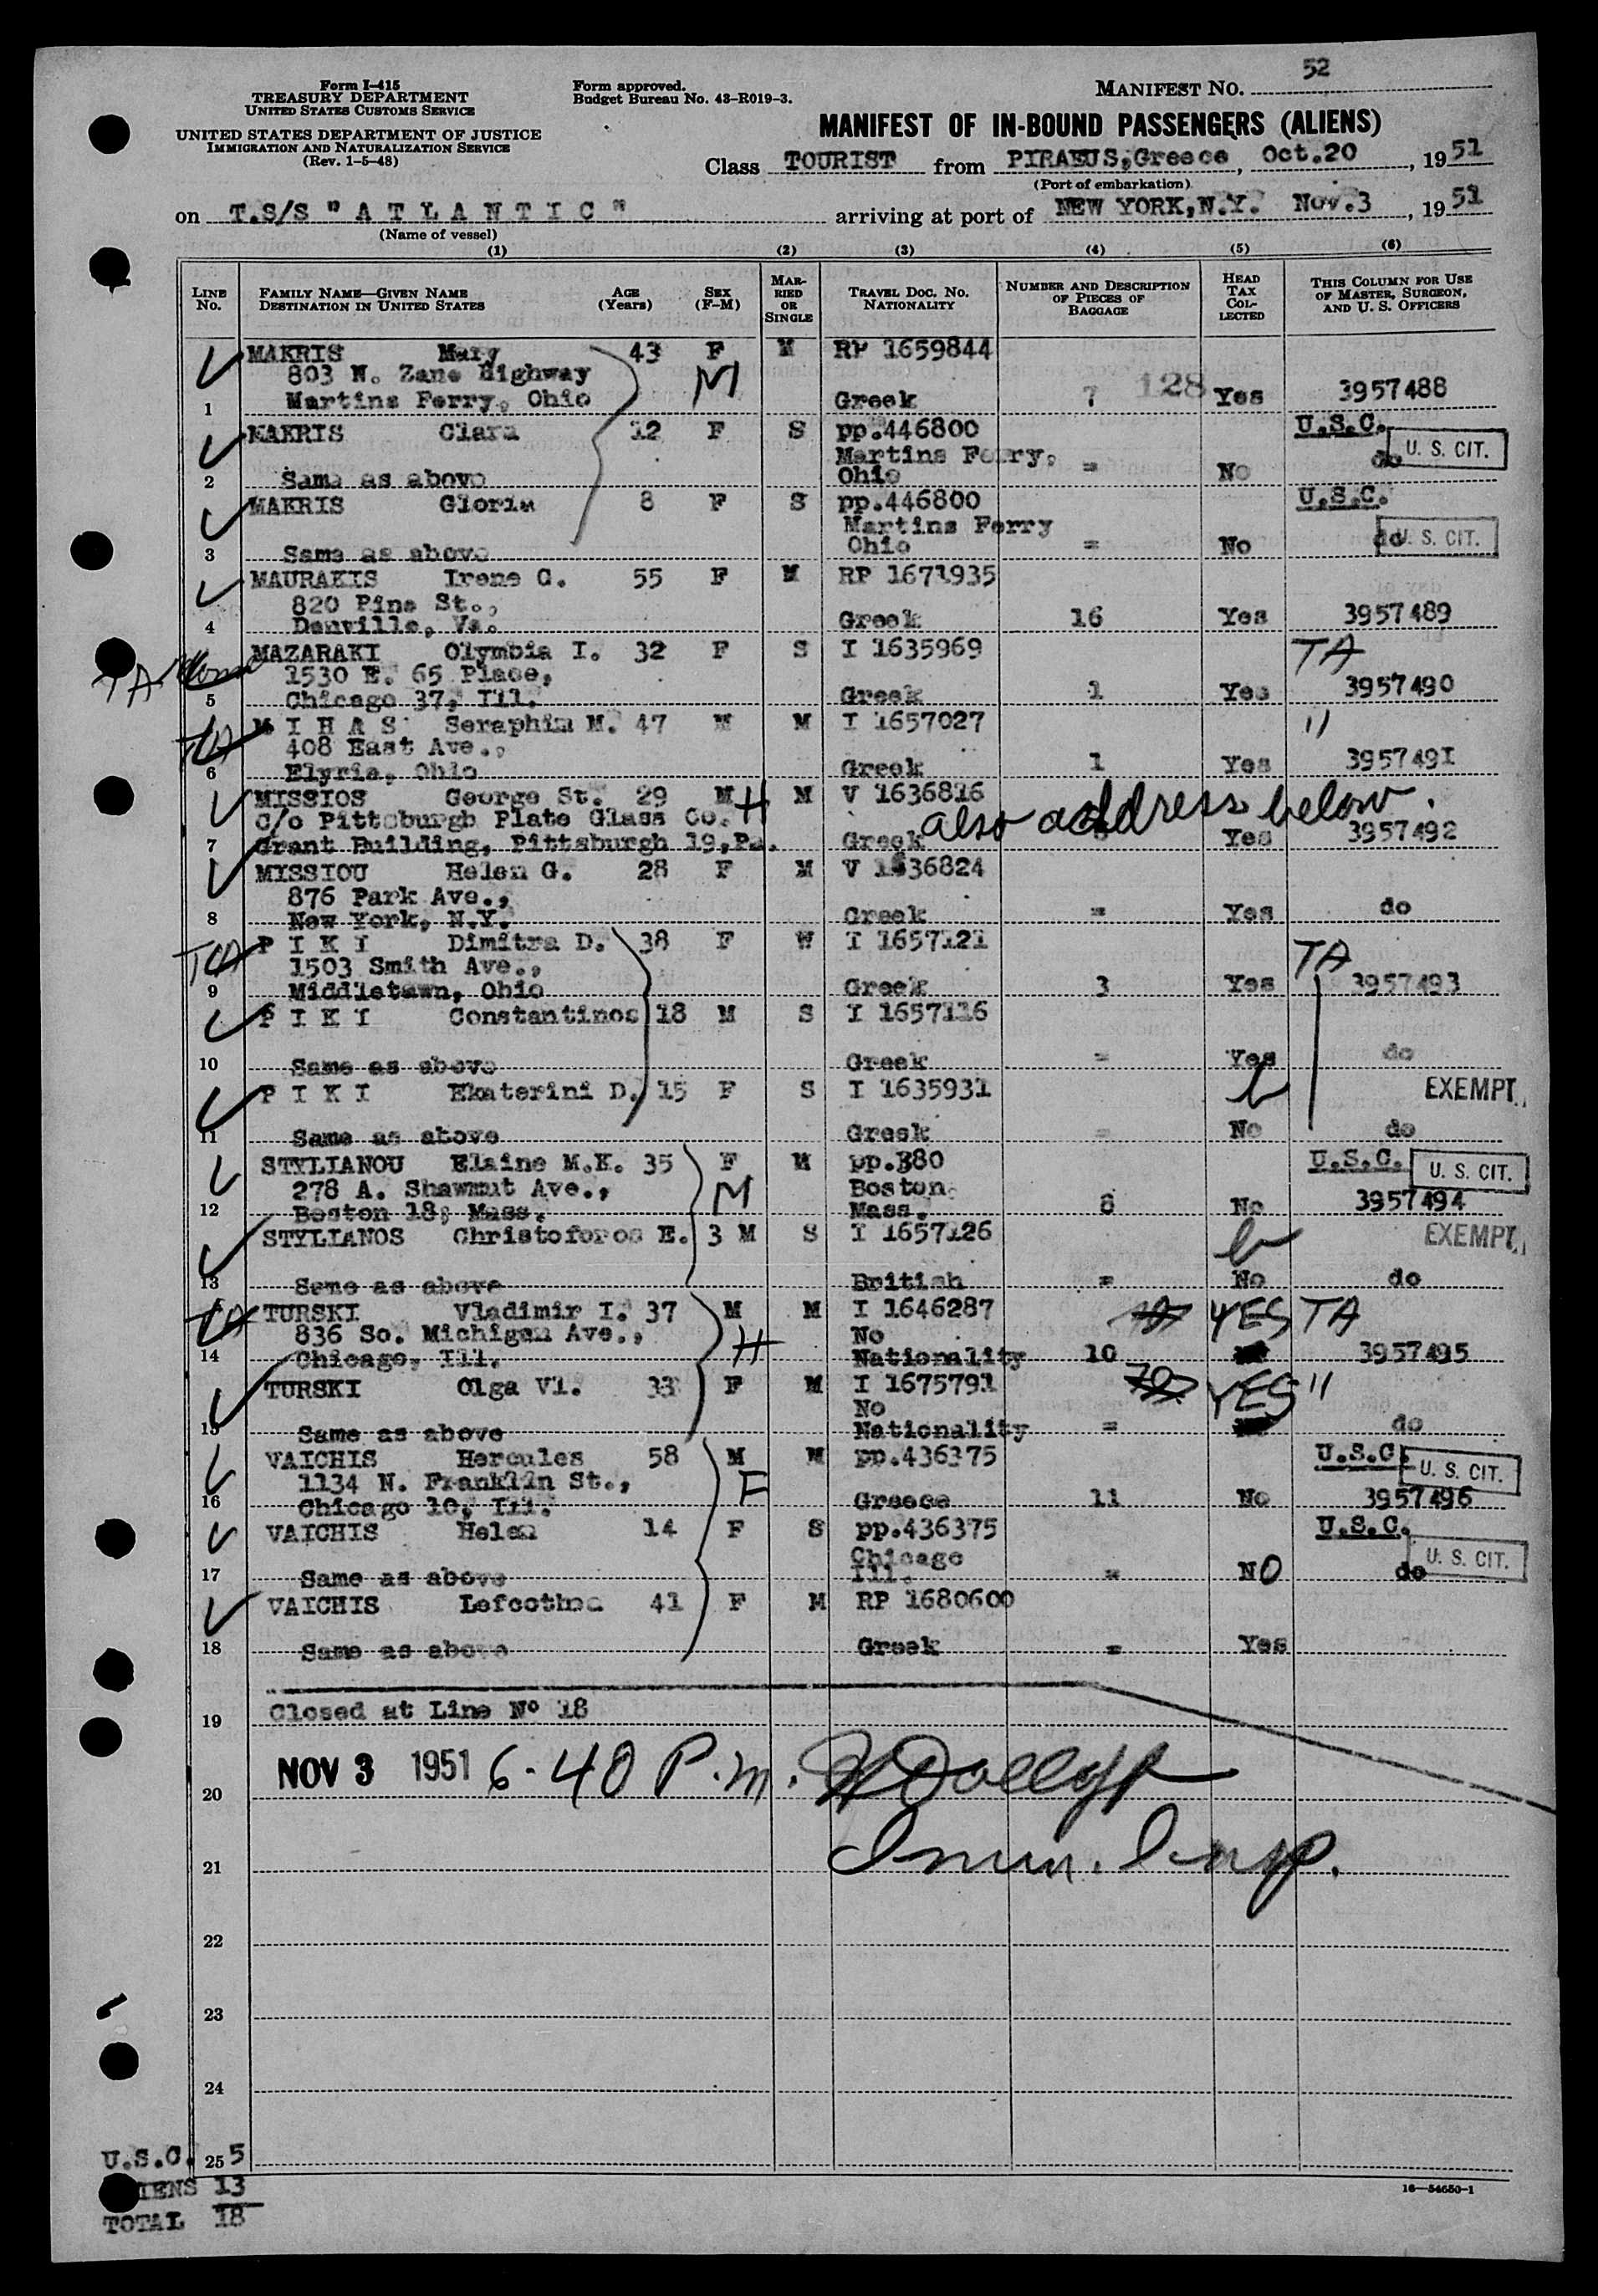 Form I-415
TREASURY DEPARTMENT
UNITED STATES CUSTOMS SERVICE
UNITED STATES DEPARTMENT OF JUSTICE
IMMIGRATION AND NATURALIZATION SERVICE
(Rev. 1-5-48)
Form approved.
Budget Bureau No. 43-R019-3.
MANIFEST NO. 52
MANIFEST OF IN-BOUND PASSENGERS (ALIENS)
Class TOURIST from PIRAEUS,Greece, Oct.20, 1951
(Port of embarkation)
on T.S/S "A T L A N T I C" arriving at port of NEW YORK,N.Y. Nov.3, 1951
(Name of vessel)
(1) (2) (3) (4) (5) (6)
LINE No. FAMILY NAME—GIVEN NAME DESTINATION IN UNITED STATES AGE (Years) SEX (F-M) MARRIED OR SINGLE TRAVEL DOC. NO. NATIONALITY NUMBER AND DESCRIPTION OF PIECES OF BAGGAGE HEAD TAX COLLECTED THIS COLUMN FOR USE OF MASTER, SURGEON, AND U. S. OFFICERS
MAKRIS Mary 43 F M RP 1659844
803 N. Zane Highway M
1 Martins Ferry, Ohio Greek 7 128 Yes 3957488
MAKRIS Clara 12 F S pp.446800 U.S.C.
Martins Ferry, U. S. CIT.
2 Same as above Ohio = No do
MAKRIS Gloria 8 F S pp.446800 U.S.C.
Martins Ferry U. S. CIT.
3 Same as above Ohio = No do
MAURAKIS Irene G. 55 F M RP 1671935
820 Pine St.,
4 Danville, Va. Greek 16 Yes 3957489
TA MAZARAKI Olymbia I. 32 F S I 1635969 TA
1530 E. 65 Place,
5 Chicago 37, Ill. Greek 1 Yes 3957490
M I H A S Seraphim M. 47 M M I 1657027 "
408 East Ave.,
6 Elyria, Ohio Greek 1 Yes 3957491
MISSIOS George St. 29 M H M V 1636816
c/o Pittsburgh Plate Glass Co. also address below.
7 Grant Building, Pittsburgh 19,Pa. Greek Yes 3957492
MISSIOU Helen G. 28 F M V 1636824
876 Park Ave.,
8 New York, N.Y. Greek = Yes do
TA P I K I Dimitra D. 38 F W I 1657121 TA
1503 Smith Ave.,
9 Middletown, Ohio Greek 3 Yes 3957493
P I K I Constantinos 18 M S I 1657116
10 Same as above Greek = Yes do
P I K I Ekaterini D. 15 F S I 1635931 EXEMPT
11 Same as above Greek = No do
STYLIANOU Elaine M.K. 35 F M pp.380 U.S.C. U. S. CIT.
278 A. Shawmut Ave., M Boston
12 Boston 18, Mass. Mass. 8 No 3957494
STYLIANOS Christoforos E. 3 M S I 1657126 EXEMPT
13 Same as above British = No do
TA TURSKI Vladimir I. 37 M M I 1646287 YES TA
836 So. Michigan Ave., H No
14 Chicago, Ill. Nationality 10 3957495
TURSKI Olga Vl. 33 F M I 1675791 YES "
No
15 Same as above Nationality = do
VAICHIS Hercules 58 M M pp.436375 U.S.C.
1134 N. Franklin St., F U. S. CIT.
16 Chicago 10, Ill. Greece 11 No 3957496
VAICHIS Helen 14 F S pp.436375 U.S.C.
Chicago U. S. CIT.
17 Same as above Ill. = NO do
VAICHIS Lefcothea 41 F M RP 1680600
18 Same as above Greek = Yes
19 Closed at Line No 18
NOV 3 1951 6-40 P.m.
20
21 Imm. Insp.
22
23
24
25
U.S.C. 5
ALIENS 13
TOTAL 18
16—54650-1